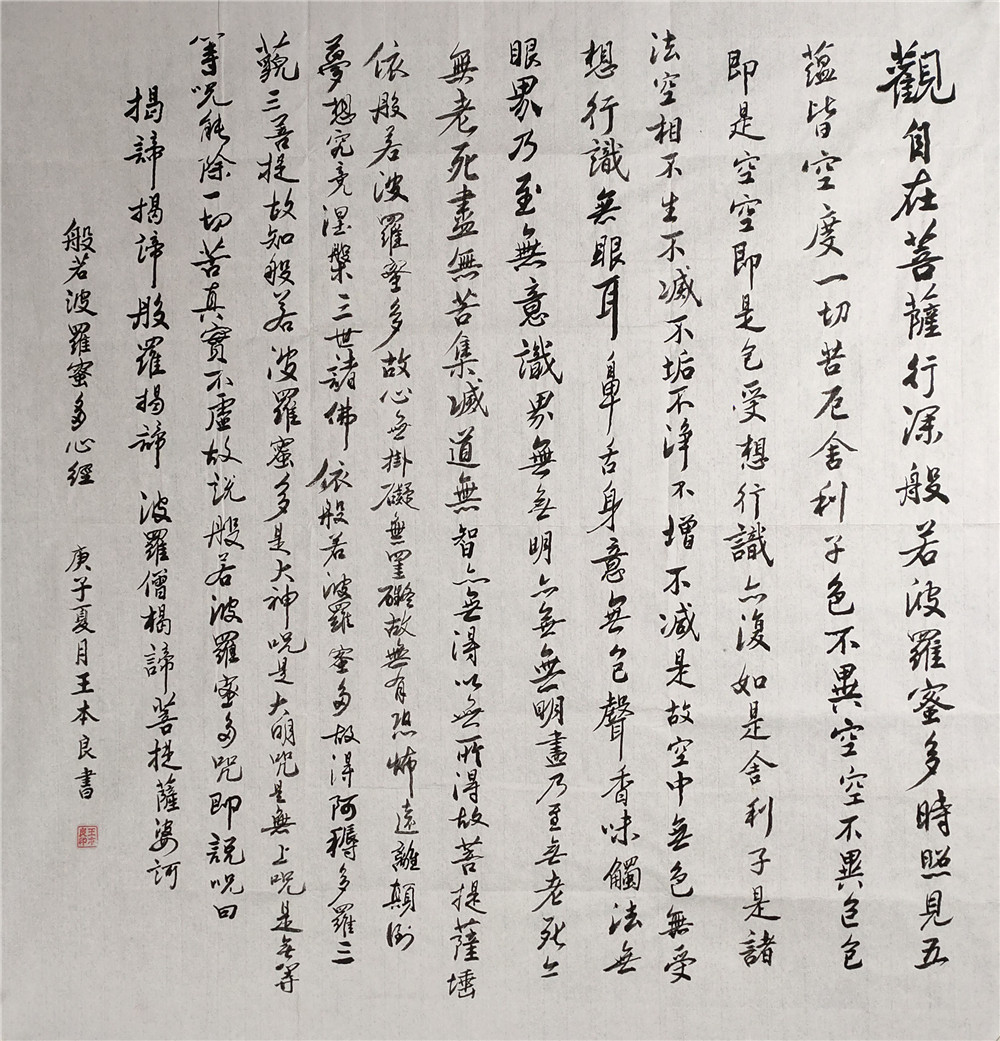 觀自在菩薩行深般若波羅蜜多時照見五
蘊皆空度一切苦厄舍利子色不異空空不異色色
即是空空即是色受想行識亦復如是舍利子是諸
法空相不生不滅不垢不淨不增不減是故空中無色無受
想行識無眼耳鼻舌身意無色聲香味觸法無
眼界乃至無意識界無無明亦無無明盡乃至無老死亦
無老死盡無苦集滅道無智亦無得以無所得故菩提薩埵
依般若波羅蜜多故心無掛礙無罣礙故無有恐怖遠離顛倒
夢想究竟涅槃三世諸佛依般若波羅蜜多故得阿耨多羅三
藐三菩提故知般若波羅蜜多是大神咒是大明咒是無上咒是無等
等咒能除一切苦真實不虛故說般若波羅蜜多咒即說咒曰
揭諦揭諦般羅揭諦波羅僧揭諦菩提薩婆訶
般若波羅蜜多心經 庚子夏月王本良書
王本良印